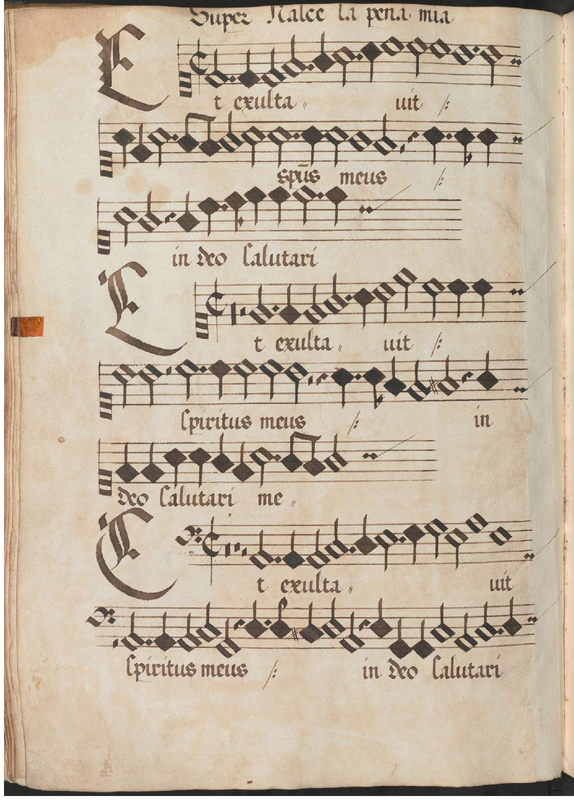 Super Nasce la pena mia
E t exulta uit
sp̄us meus
in deo salutari
E t exulta uit
spiritus meus in
deo salutari me
E t exulta uit
spiritus meus in deo salutari